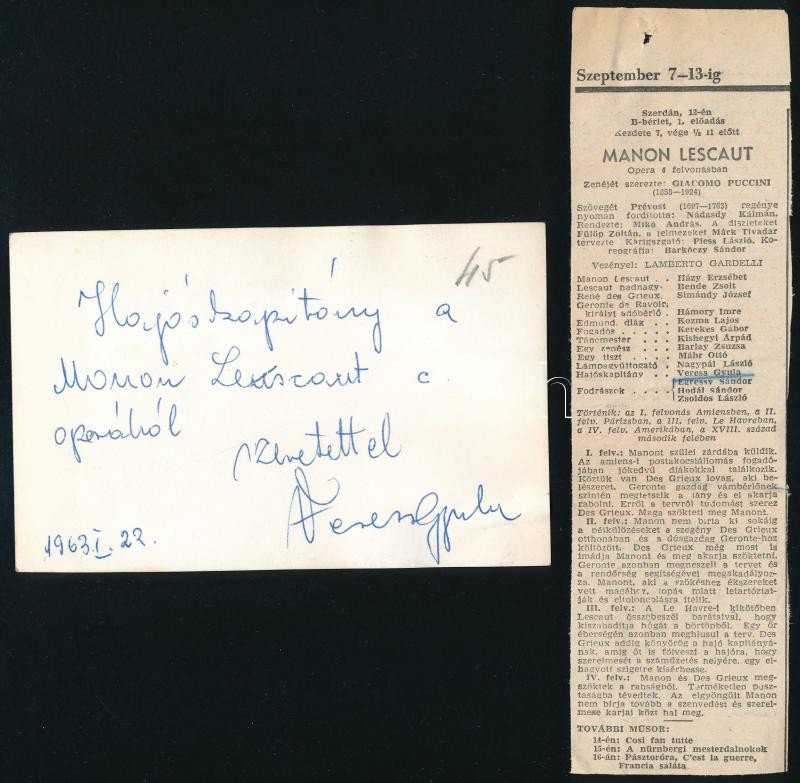 45
Hajóskapitány a
Manon Lescaut c.
operából
szeretettel
Veress Gyula
1963.I.22.
Szeptember 7—13-ig
Szerdán, 12-én
B-bérlet, 1. előadás
Kezdete 7, vége ½ 11 előtt
MANON LESCAUT
Opera 4 felvonásban
Zenéjét szerezte: GIACOMO PUCCINI
(1858—1924)
Szövegét Prévost (1697—1763) regénye
nyomán fordította: Nádasdy Kálmán.
Rendezte: Mikó András. A díszleteket
Fülöp Zoltán, a jelmezeket Márk Tivadar
tervezte Karigazgató: Pless László. Ko-
reográfia: Barkóczy Sándor
Vezényel: LAMBERTO GARDELLI
Manon Lescaut . . Házy Erzsébet
Lescaut hadnagy . Bende Zsolt
René des Grieux . Simándy József
Geronte de Ravoir,
királyi adóbérlő . Hámory Imre
Edmund, diák . . . Kozma Lajos
Fogadós . . . . . Kerekes Gábor
Táncmester . . . . Kishegyi Árpád
Egy zenész . . . . Barlay Zsuzsa
Egy tiszt . . . . Máhr Ottó
Lámpagyújtogató . Nagypál László
Hajóskapitány . . Veress Gyula
Egressy Sándor
Fodrászok . . . . Hodál Sándor
Zsoldos László
Történik: az I. felvonás Amiensben, a II.
felv. Párizsban, a III. felv. Le Havreban,
a IV. felv. Amerikában, a XVIII. század
második felében
I. felv.: Manont szülei zárdába küldik.
Az amiens-i postakocsiállomás fogadó-
jában jókedvű diákokkal találkozik.
Köztük van Des Grieux lovag, aki be-
leszeret. Geronte gazdag vámbérlőnek
szintén megtetszik a lány és el akarja
rabolni. Erről a tervről tudomást szerez
Des Grieux. Maga szökteti meg Manont.
II. felv.: Manon nem bírta ki sokáig
a nélkülözéseket a szegény Des Grieux
otthonában és a dúsgazdag Geronte-hoz
költözött. Des Grieux még most is
imádja Manont és meg akarja szöktetni.
Geronte azonban megneszeli a tervet és
a rendőrség segítségével megakadályoz-
za. Manont, aki a szökéshez ékszereket
vett magához, lopás miatt letartóztat-
ják és eltoloncolásra ítélik.
III. felv.: A Le Havre-i kikötőben
Lescaut összebeszél barátaival, hogy
kiszabadítja húgát a börtönből. Egy őr
éberségén azonban meghiusul a terv. Des
Grieux addig könyörög a hajó kapitányá-
nak, amíg őt is fölveszi a hajóra, hogy
szerelmesét a száműzetés helyére, egy el-
hagyott szigetre kísérhesse.
IV. felv.: Manon és Des Grieux meg-
szöktek a rabságból. Terméketlen pusz-
taságba tévedtek. Az elgyöngült Manon
nem bírja tovább a szenvedést és szerel-
mese karjai közt hal meg.
TOVÁBBI MŰSOR:
14-én: Cosi fan tutte
15-én: A nürnbergi mesterdalnokok
16-án: Pásztoróra, C'est la guerre,
Francia saláta